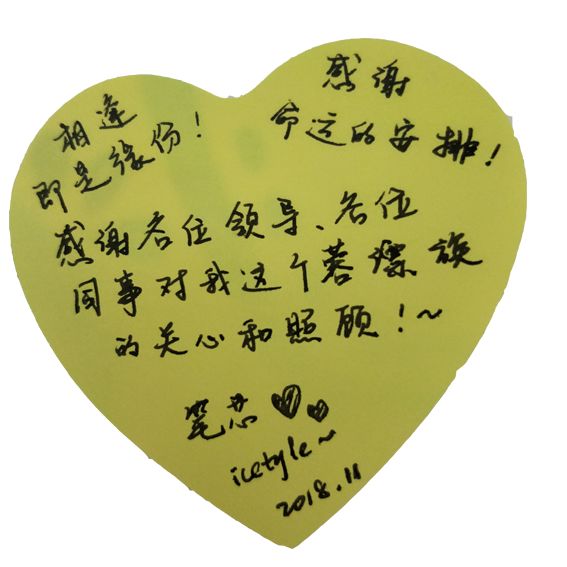 相逢
即是缘份！
感谢
命运的安排！
感谢各位领导、各位
同事对我这个蓉漂族
的关心和照顾！~
笔芯
icetyle~
2018.11